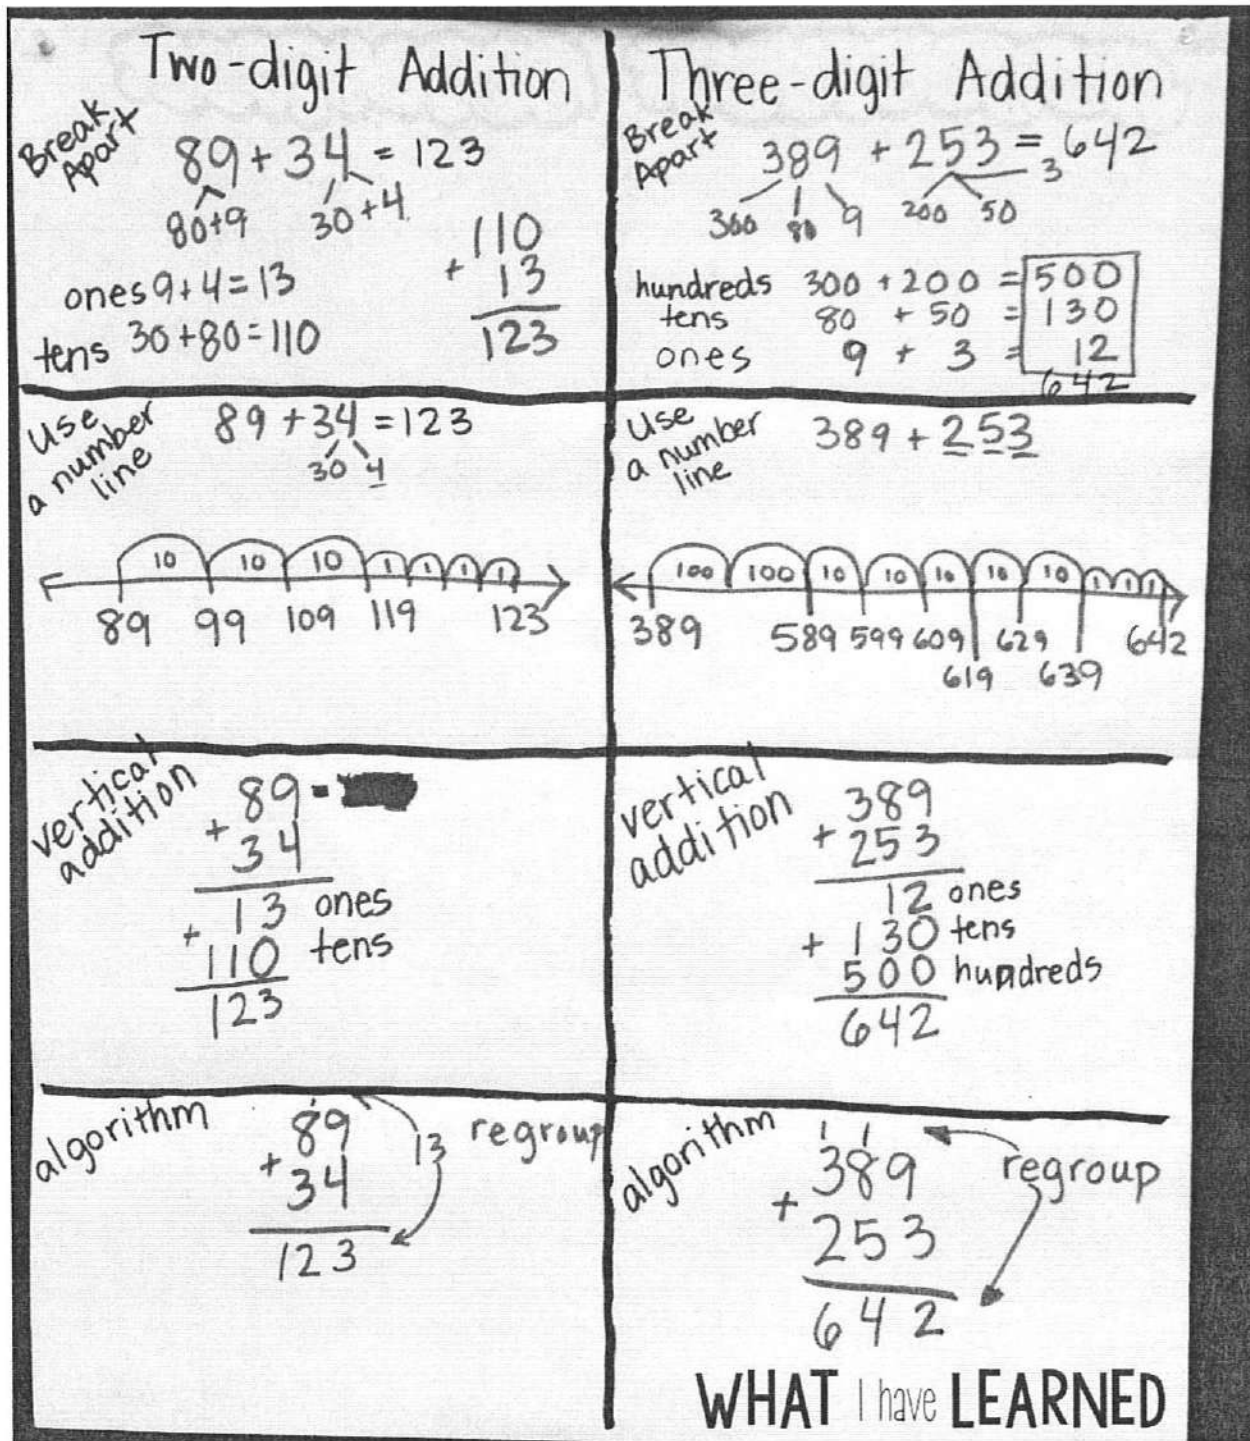 Two-digit Addition
Break Apart
89 + 34 = 123
80+9 30+4
ones 9+4=13
tens 30+80=110
110
+ 13
123
Use a number line
89 + 34 = 123
30 4
10 10 10 1 1 1 1
89 99 109 119 123
vertical addition
89
+ 34
13 ones
+ 110 tens
123
algorithm
1
89
+ 34
123
13 regroup
Three-digit Addition
Break Apart
389 + 253 = 642
300 80 9 200 50 3
hundreds 300 + 200 = 500
tens 80 + 50 = 130
ones 9 + 3 = 12
642
Use a number line
389 + 253
100 100 10 10 10 10 10 1 1 1
389 589 599 609 629 642
619 639
vertical addition
389
+ 253
12 ones
+ 130 tens
500 hundreds
642
algorithm
1 1
389
+ 253
642
regroup
WHAT I have LEARNED